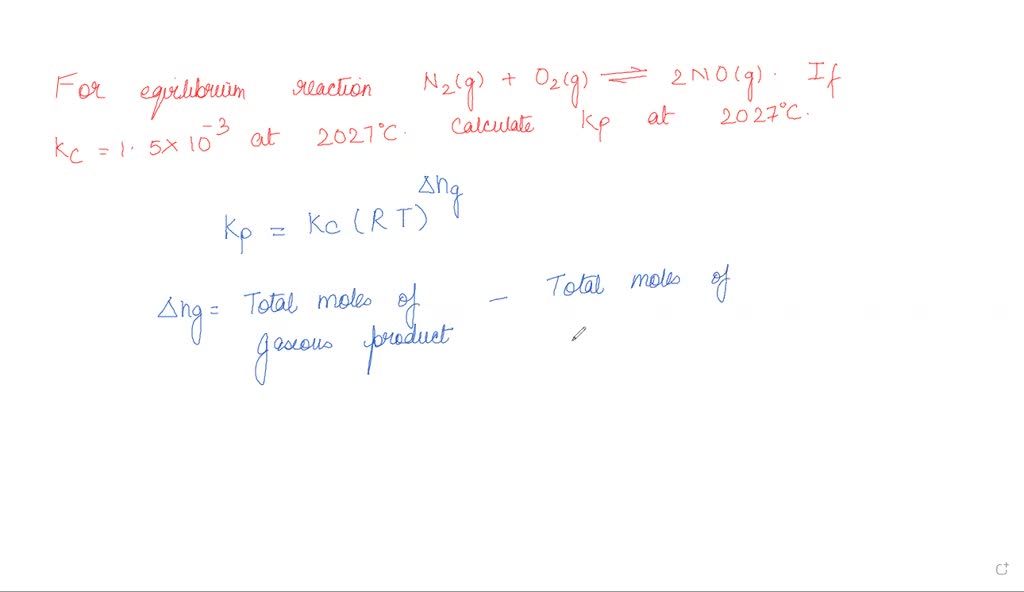 For equilibrium reaction N₂(g) + O₂(g) ⇌ 2NO(g). If
Kc = 1.5×10⁻³ at 2027°C. Calculate Kp at 2027°C.
Kp = Kc (RT)^Δng
Δng = Total moles of gaseous product – Total moles of